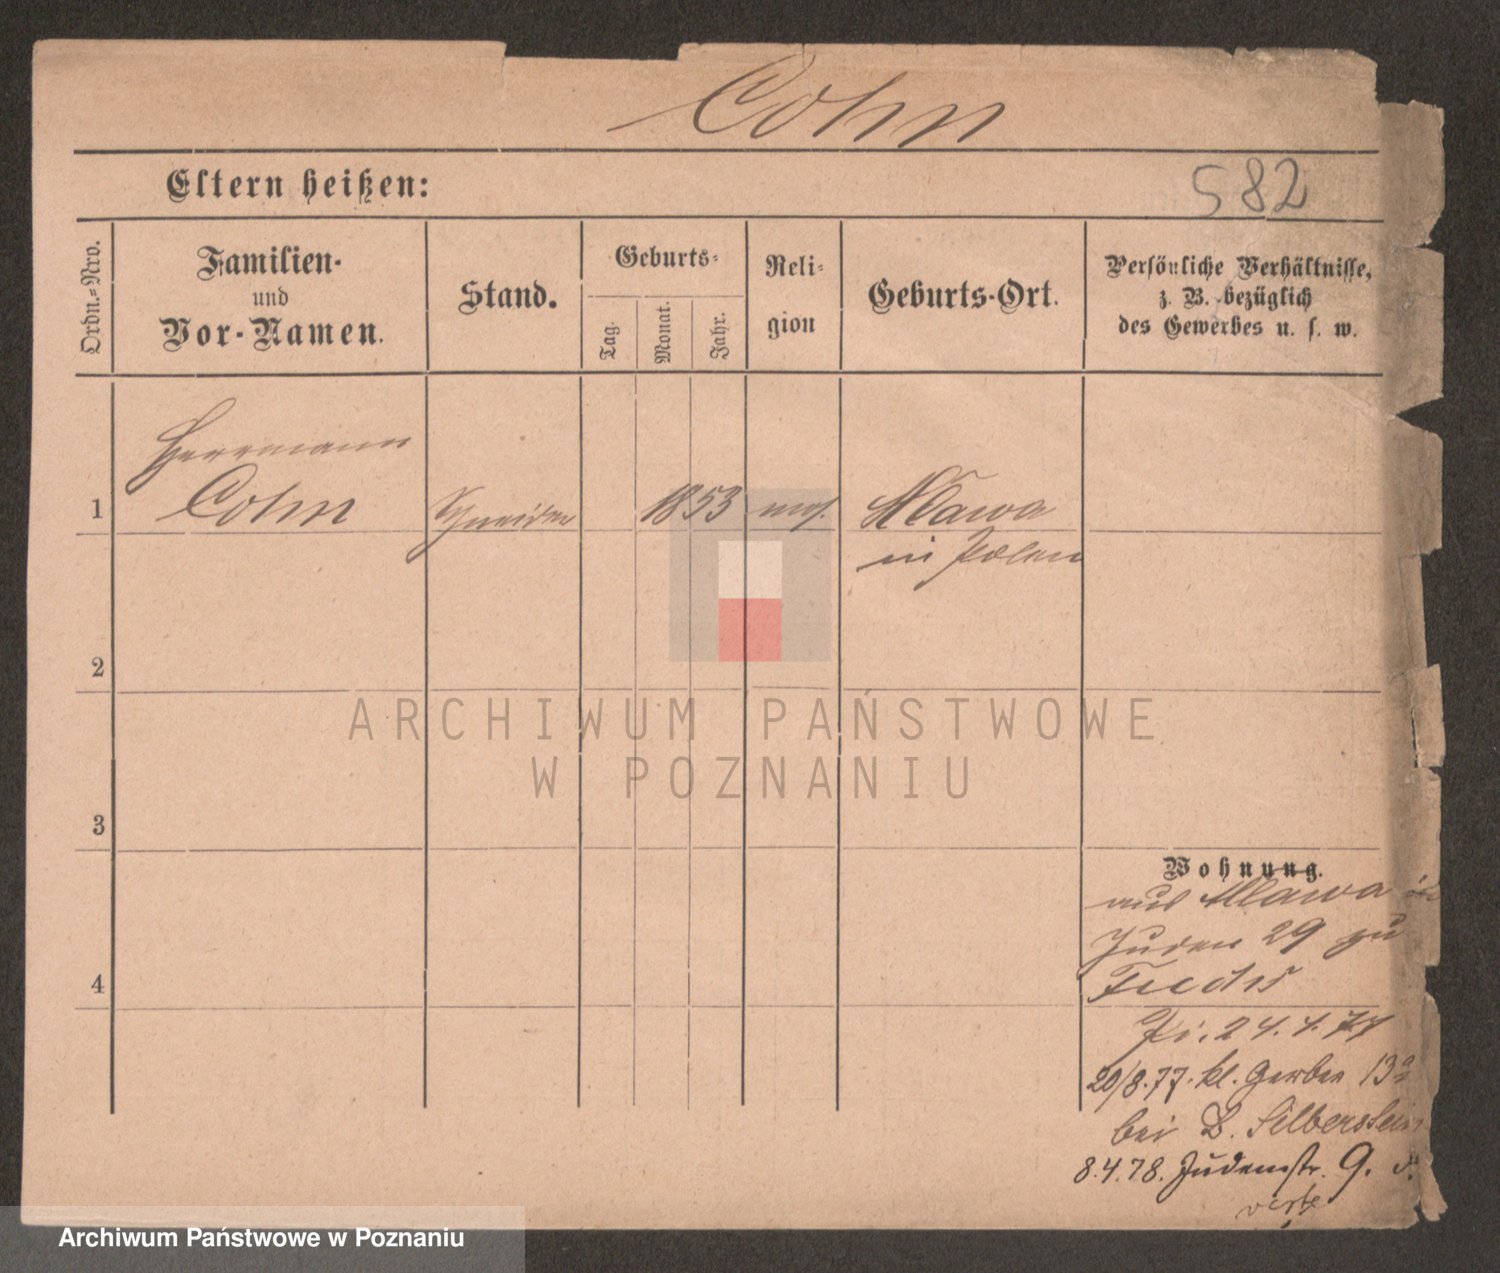 Cohn
Eltern heißen:
582
Ordn.-Nro.
Familien-
und
Vor-Namen.
Stand.
Geburts-
Tag.
Monat.
Jahr.
Reli-
gion
Geburts-Ort.
Persönliche Verhältnisse,
z. B. bezüglich
des Gewerbes u. s. w.
Herrmann
1 Cohn Schneider 1853 mos. Mlawa
in Polen
2
ARCHIWUM PAŃSTWOWE
W POZNANIU
3
Wohnung.
aus Mlawa in
Juden 29 zu
Fuchs
4
24.4.77
20/8.77. kl. Gerber 13a
bei B. Silberstein
8.4.78. Judenstr. 9.
Archiwum Państwowe w Poznaniu